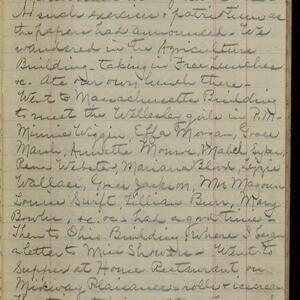 No such exercises & patriotism as
the papers had announced. We
wandered in the Agriculture
Building - taking in Free lunches
&c. Ate our own lunch there -
Went to Massachusetts Building
to meet the Wellesley girls in P.M.
Minnie Wiggin, Effa Morgan, Grace
Mann, Annette Monroe, Mabel
Rena Webster, Mariana Blood, Lizzie
Wallace, Grace Jackson, Mr Magoun
Louise Swift, Lillian Burr, Mary
Bowler, &c, &c - had a good time -
Then to Ohio Building where I began
a letter to Miss - Went to
Supper at Home Restaurant on
Midway Plaisance - rolls & icecream